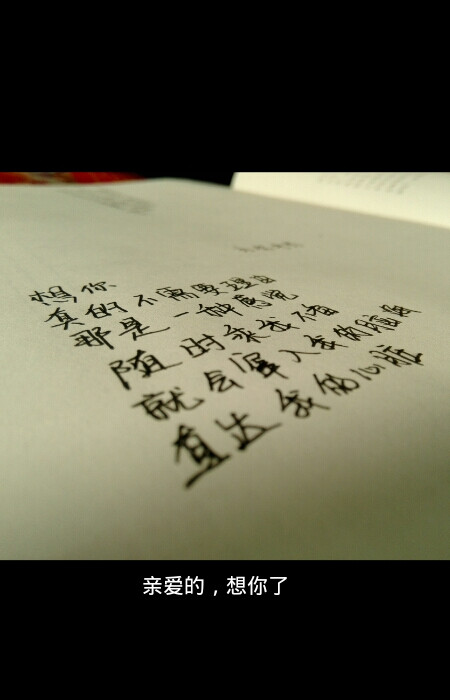 想你
真的不需要理由
那是一种感觉
随时乘我不备
就会窜入我的脑海
直达我的心脏
亲爱的，想你了